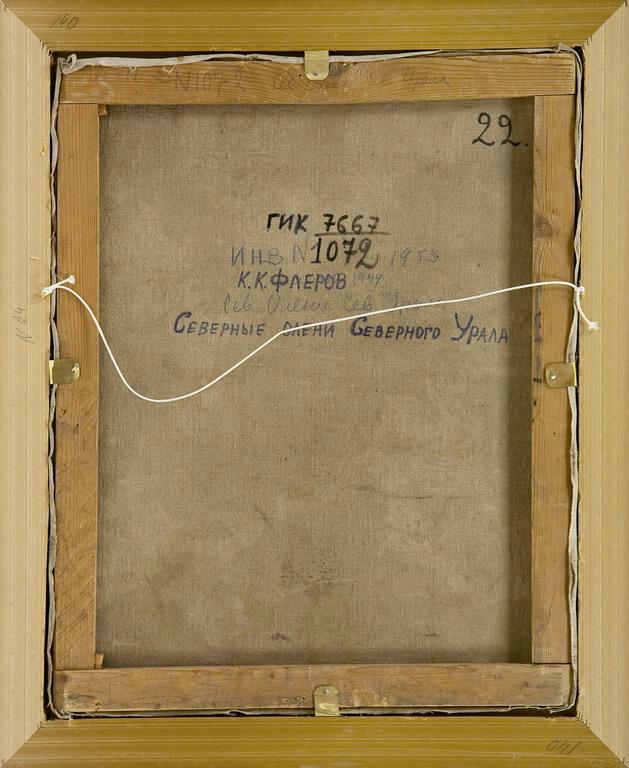 160
N1072 Сев. Урала
22.
ГИК 7667
ИНВ N 1072 1953
К.К.ФЛЕРОВ 1944
Сев. Олени Сев. Урала
СЕВЕРНЫЕ ОЛЕНИ СЕВЕРНОГО УРАЛА
N 24